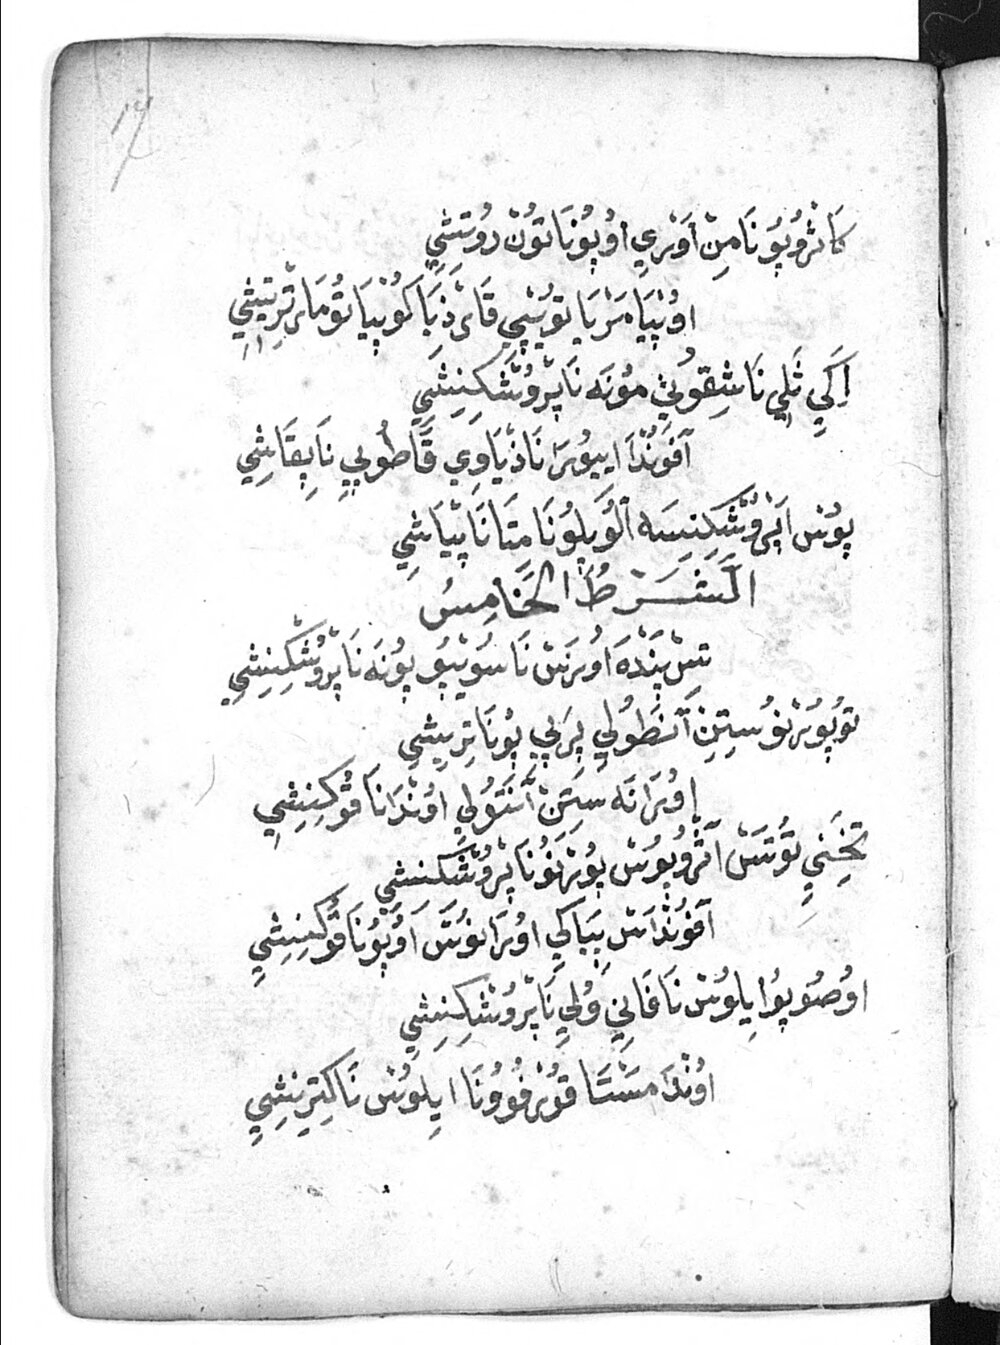 كَاثْرُوُپُوُنَا مِنْ اَوْرِي اُوُپُونَا تُوُنْ دُوُتِتِشِي
اوُنْپِيَا مَرْيَا تُوُيْپِي قَاىْ ذِبَا كُوُنْپِيَا تُوُمَارْتِرِتِيشِي
اَكِي ثَلِي نَا شِقُوُنْ مُوُنَه نَاپْرُوُشَكِنِشِي
آفُوُنْدَا اِيپُوُرَا نَاذْيَاوِي قَاطُوُپِي نَاپِقَاشِي
پُوُسْ اَپْرُوُشَكِنِسَه اَلُوُپِلُوُنَا مِتَانَا پِيَاشِي
الشَّرْطُ الْخَامِسُ
تِسْ پَنْدَه اُوُرَسْ نَا سُوُيْپُوُ پُوُنَه نَاپْرُوُشْكِنِشِي
تُوُپُوُرْنُوُ سِتِنْ آنَطُوُلِي پِرَپِي پُوُنَا تِرِيشِي
اُوُرَانَه سِتِنْ آنَتُوُلِي اُوُنْدَا نَا قُوُكِنِشِي
تَخِنِي تُوُتَسْ آثْرُوُپُوُسْ پُوُرْنَوُنَا پْرُوُشَكِنِشِي
آفُوُنْدَاسْ پِبَاكِي اُوُرَانُوُسْ اَوُپُوُنَا قُوُكِنِشِي
اُوُصُوُپُوُ اِيلُوُسْ نَا فَانِي وُلِي نَاپْرُوُشْكِنِشِي
اُوُنْدَا مَسْتَا قُوُرْفُوُوُنَا اِيلُوُسْ نَا كِتِرِنِشِي